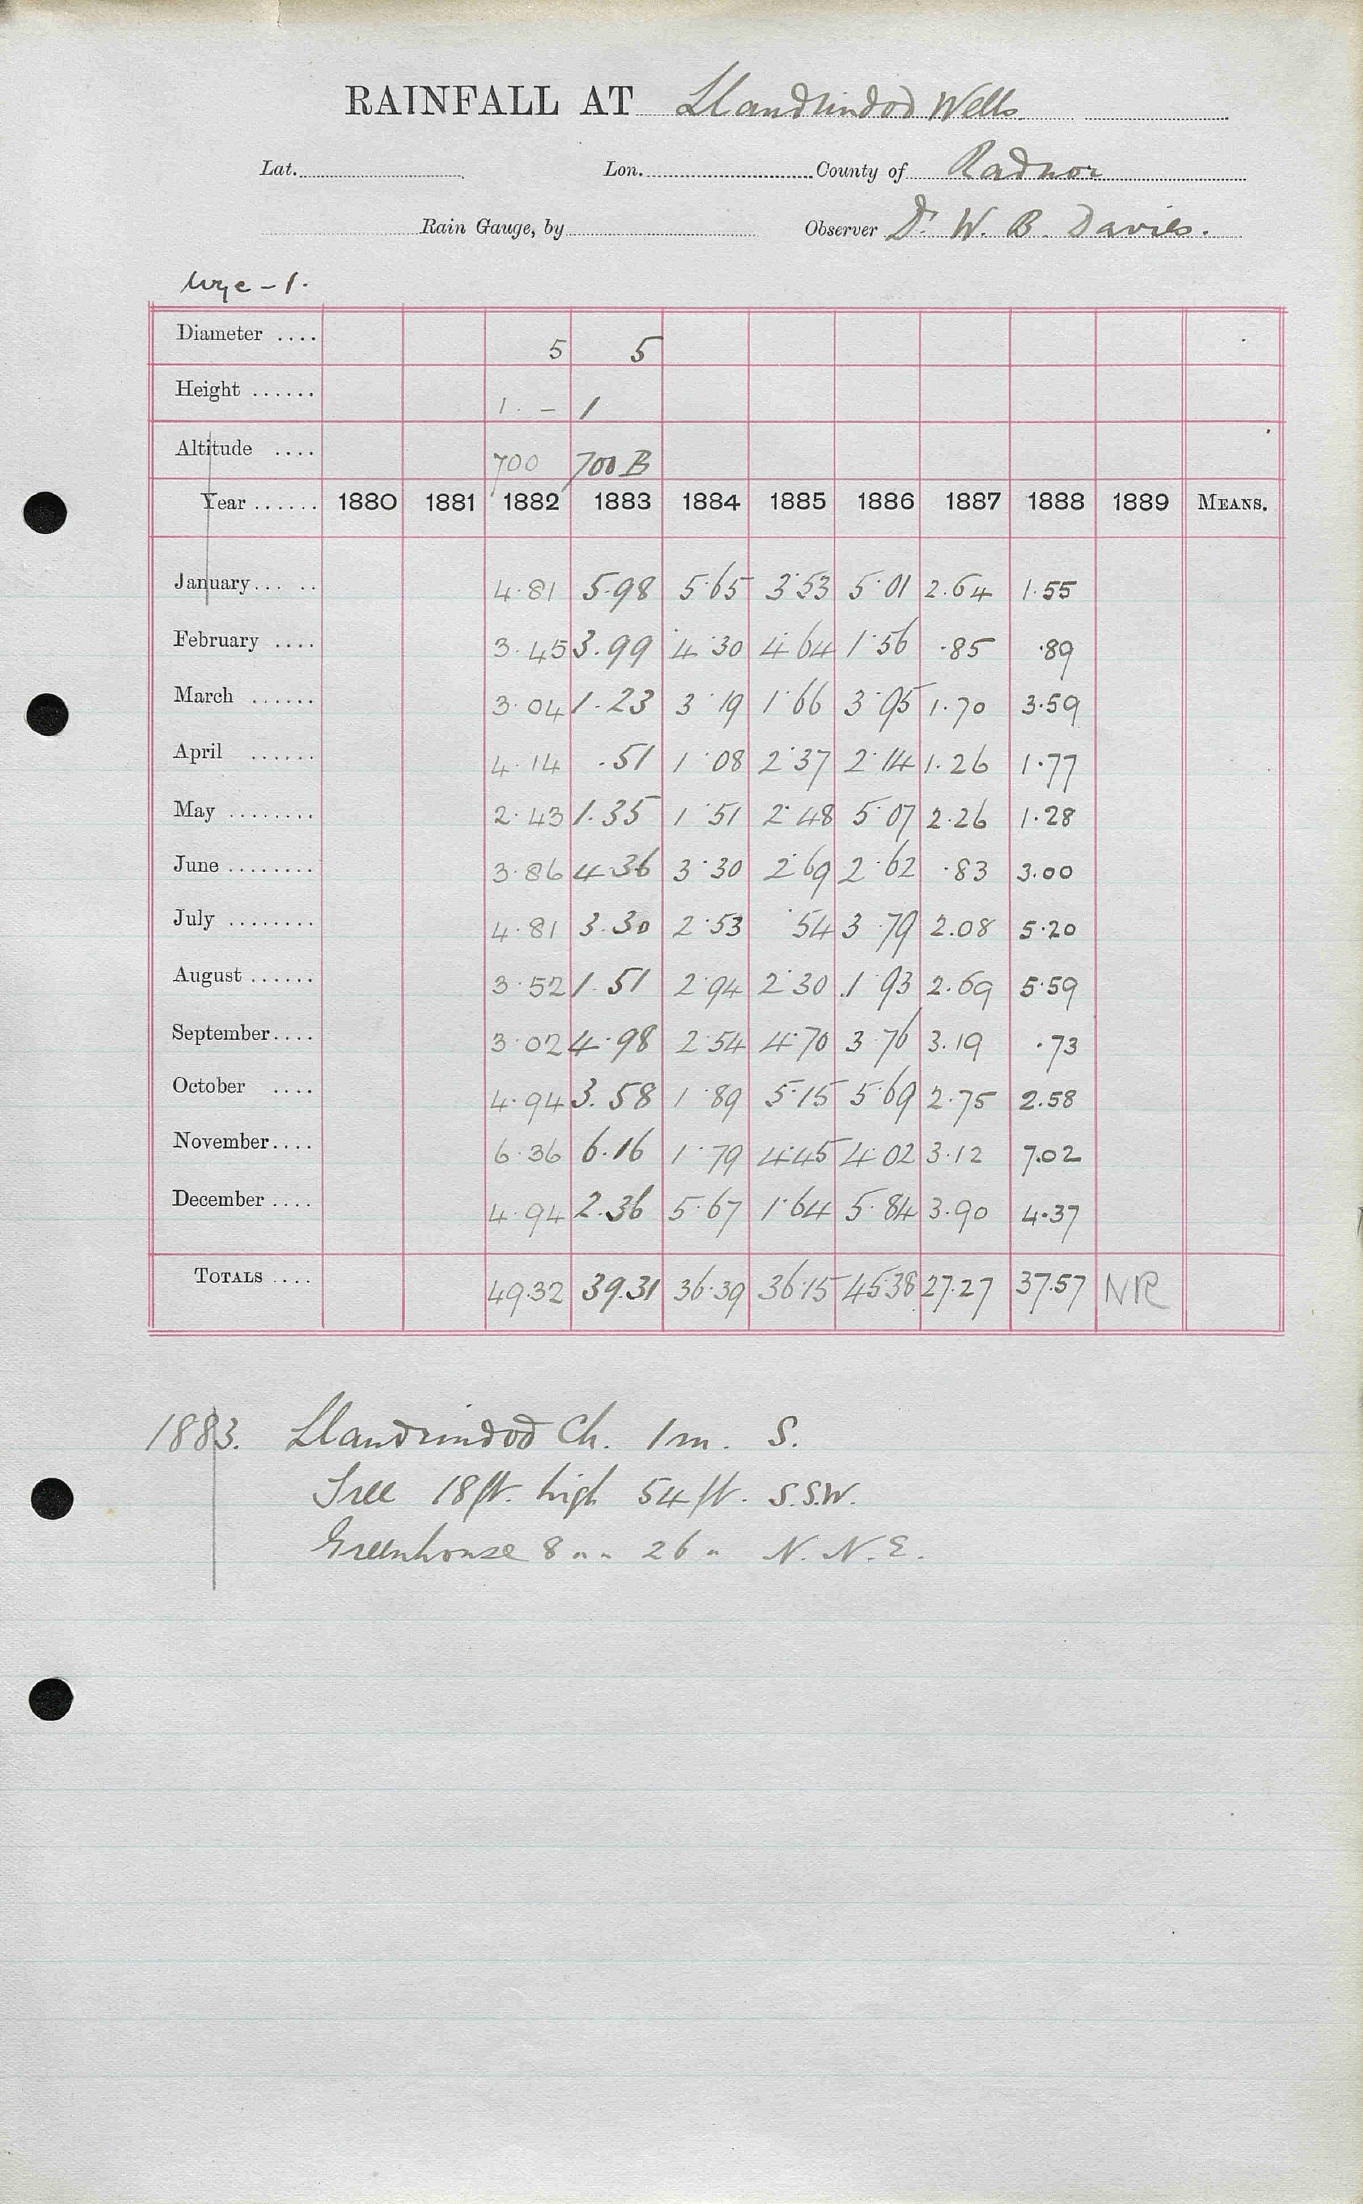 RAINFALL AT Llandrindod Wells
Lat. Lon. County of Radnor
Rain Gauge, by Observer Dr. W. B. Davies.
Wye - 1.
Diameter .... 5 5
Height ...... 1. - 1
Altitude .... 700 700 B
Year ...... 1880 1881 1882 1883 1884 1885 1886 1887 1888 1889 MEANS.
January... .. 4.81 5.98 5.65 3.53 5.01 2.64 1.55
February .... 3.45 3.99 4.30 4.64 1.56 .85 .89
March ...... 3.04 1.23 3.19 1.66 3.95 1.70 3.59
April ...... 4.14 .51 1.08 2.37 2.14 1.26 1.77
May ........ 2.43 1.35 1.51 2.48 5.07 2.26 1.28
June ........ 3.86 4.36 3.30 2.69 2.62 .83 3.00
July ........ 4.81 3.30 2.53 .54 3.79 2.08 5.20
August ...... 3.52 1.51 2.94 2.30 1.93 2.69 5.59
September.... 3.02 4.98 2.54 4.70 3.76 3.19 .73
October .... 4.94 3.58 1.89 5.15 5.69 2.75 2.58
November.... 6.36 6.16 1.79 4.45 4.02 3.12 7.02
December .... 4.94 2.36 5.67 1.64 5.84 3.90 4.37
TOTALS .... 49.32 39.31 36.39 36.15 45.38 27.27 37.57 NR
1883. Llandrindod Ch. 1m. S.
Tree 18ft. high 54ft. S.S.W.
Greenhouse 8 " " 26 " N.N.E.